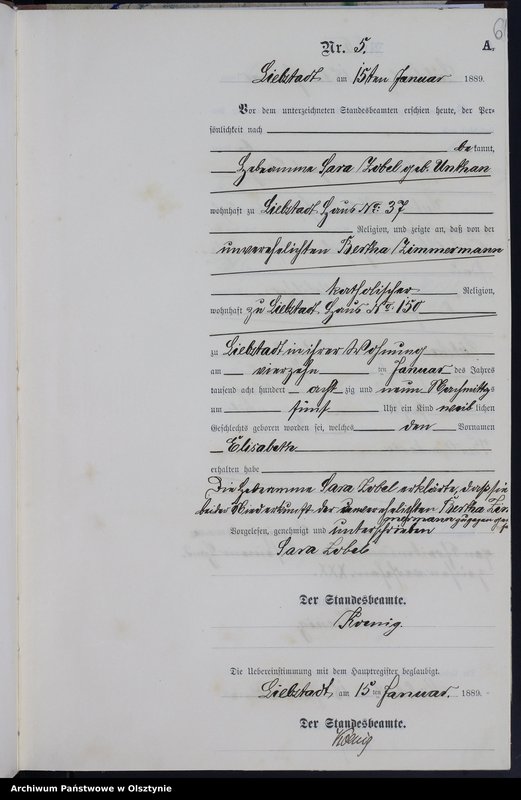 Nr. 5.
A.
Liebstadt am 15ten Januar 1889.
Vor dem unterzeichneten Standesbeamten erschien heute, der Per-
sönlichkeit nach
be kannt,
Hebeamme Sara Zobel geb. Unthan
wohnhaft zu Liebstadt Haus No: 37
Religion, und zeigte an, daß von der
unverehelichten Bertha Zimmermann
katholischer Religion,
wohnhaft zu Liebstadt Haus No: 150
zu Liebstadt in ihrer Wohnung
am vierzehn ten Januar des Jahres
tausend acht hundert acht zig und neun Nachmittags
um fünf Uhr ein Kind weib lichen
Geschlechts geboren worden sei, welches den Vornamen
Elisabeth
erhalten habe
Die Hebeamme Sara Zobel erklärte, daß sie
bei der Niederkunft der unverehelichten Bertha Zim
mermann zugegen
Vorgelesen, genehmigt und unterschrieben
Sara Zobel
Der Standesbeamte.
Koenig.
Die Uebereinstimmung mit dem Hauptregister beglaubigt.
Liebstadt am 15 ten Januar. 1889.
Der Standesbeamte.
Koenig
Archiwum Państwowe w Olsztynie